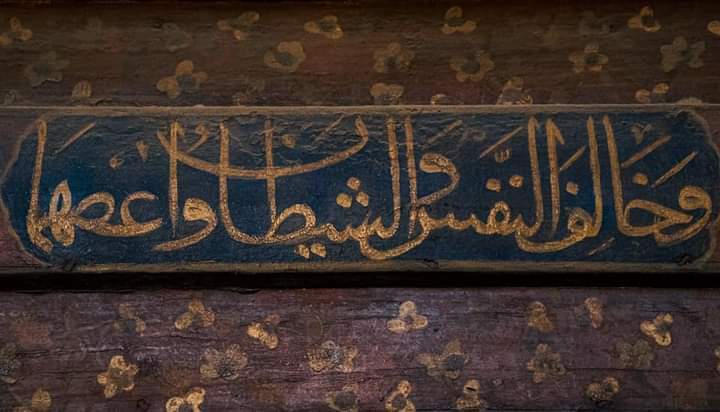 وخالف النفس والشيطان واعصهما